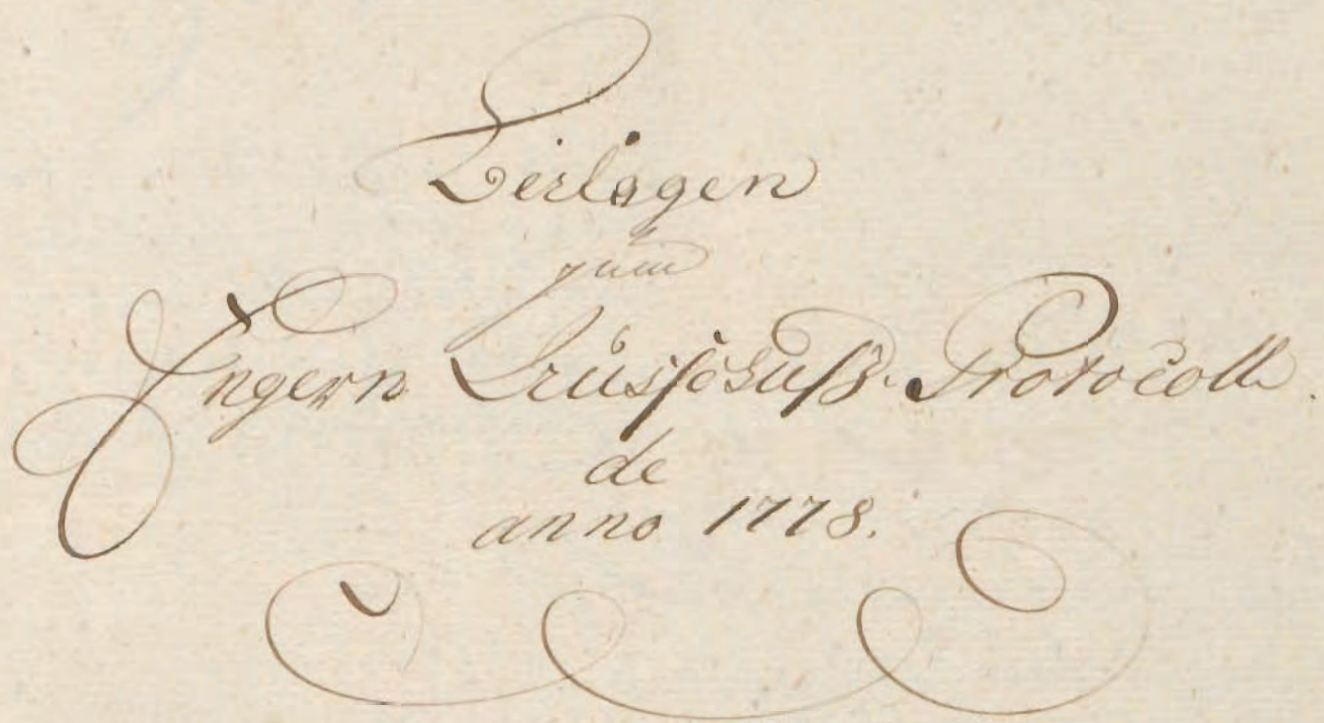 Beilagen
zum
Engern Ausschuß-Protocoll
de
anno 1778.